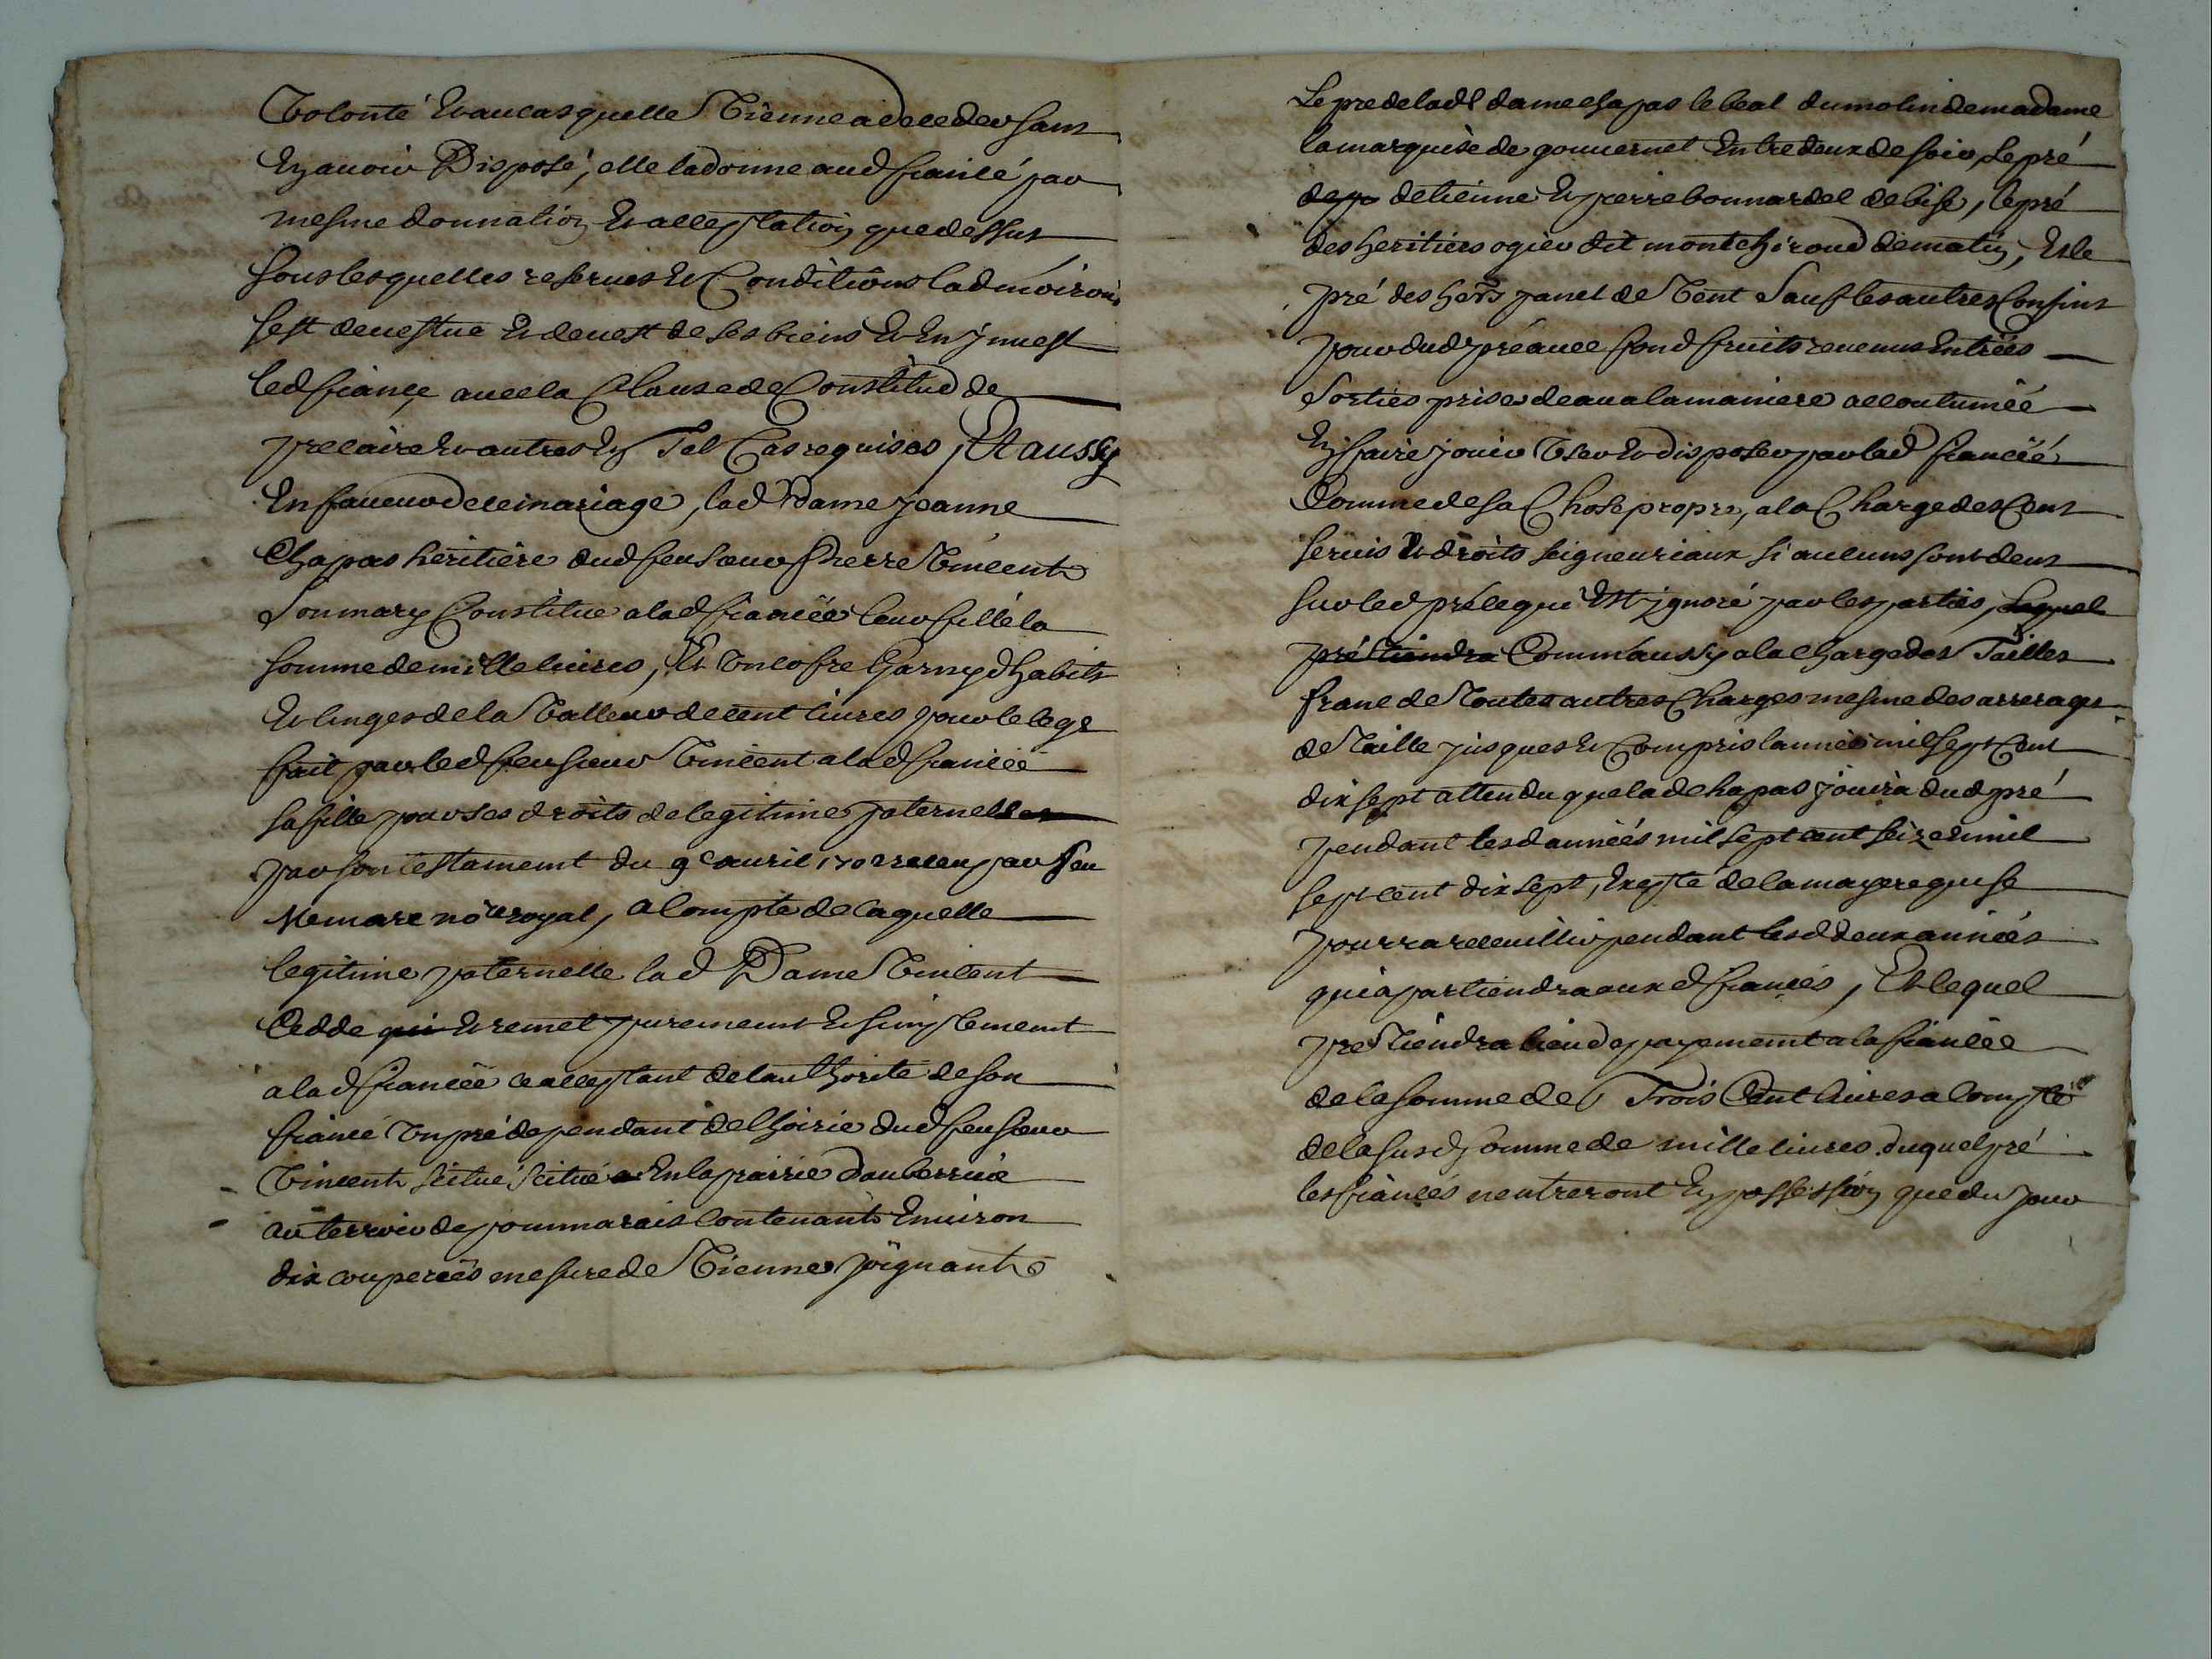 volonté Et au cas quelle vienne a deceder sans
En avoir Disposé, elle la donne aud fiancé par
mesme donnation Et acceptation que dessus
sous lesquelles reserues Et Conditions lad moiroud
sest deuestue Et deuest de ses biens Et En Jnuest
led fiancé auec la Clause de Constitud de
precaire Et autres En Tel Cas requises, Et aussy
En faueur de ce mariage, lad Dame Jeanne
Chapas heritiere dud feu sieur pierre Vincent
Son mary Constitue a lad fiancée leur fille la
somme de mille liures, Et Vn cofre Garny dhabits
Et linges de la Valleur de cent liures pour le legt
fait par led feu sieur Vincent a lad fiancée
sa fille pour ses droits de legitime paternelles
par son testament du 9e auril receu par feu
Me marc nore royal, a Compte de laquelle
legitime paternelle lad Dame Vincent
Cedde qui Et remet purement Et simplement
a lad fiancée acceptant de lauthorité de son
fiancé Vn pré dependant de lhoirie dud feu sieur
Vincent scitué scitué a En la prairie dauberriue
au terroir de pommarais Contenant Enuiron
dix couperées mesure de Vienne Joignant
Le pre de lade dame chapas le beal du molin de madame
la marquise de gouuernet Entre deux de soir, Le pré
de po detienne Et pierre bonnardel de bise, le pré
des heritiers ogier dit montchiroud de matin, Et le
pré des hers Janet de Vent Sauf les autres Confins
pour dud pré auec fond fruits reuenus Entrées
Sorties prises deau a la maniere accoutumée
En faire jouir Vser Et disposer par lad fiancée
Comme de sa Chose propre, a la Charge des Cens
seruis Et droits seigneuriaux si aucuns sont deus
sur led pré ce qui Est jgnoré par les parties, Lequel
pré tiendra Comm'aussy a la charge des Tailles
franc de Toutes autres Charges mesme des arrerages
de Taille jusques Et Compris lannée mil sept Cent
dix sept attendu que lade chapas jouira dud pré
pendant lesd années mil sept cent seize Et mil
sept cent dix sept, Exepté de la mayere qui se
pourra recueillir pendant lesd deux années
qui apartiendra aux d fiancés, Et lequel
pre Tiendra lieu de payement a la fiancée
de la somme de Trois Cent liures a Compte
de la susd somme de mille liures duquel pré
les fiancés nentreront En possession que du jour